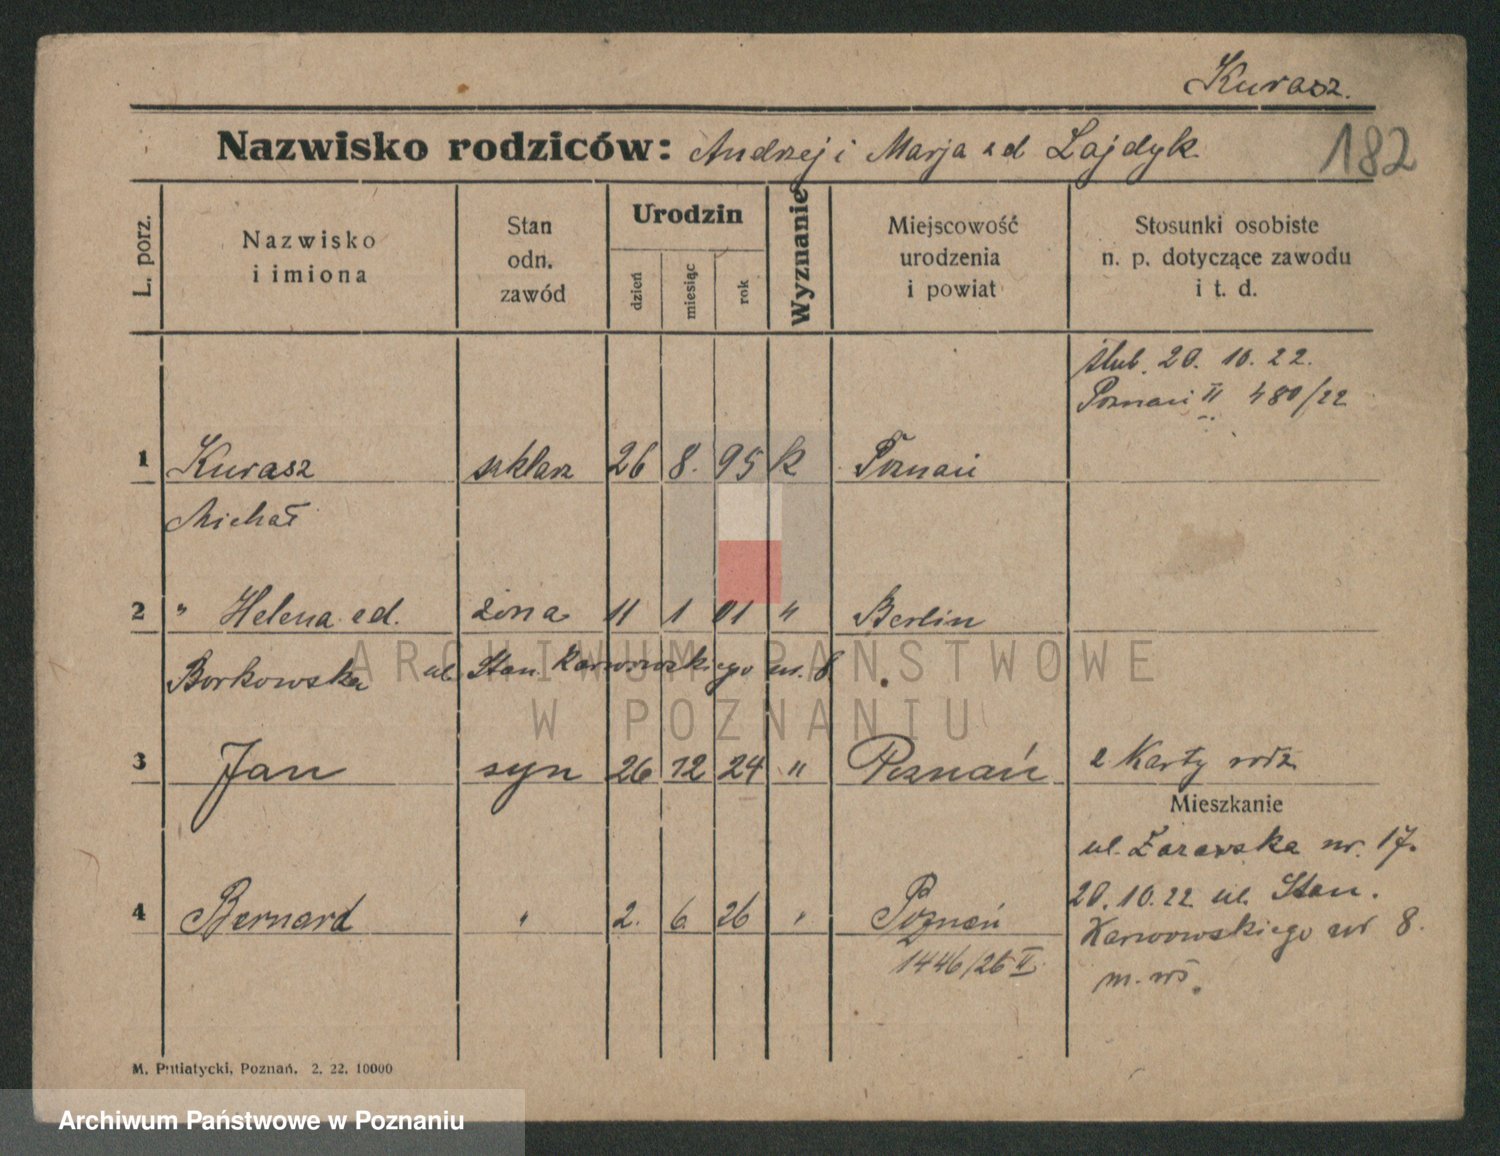 Kurasz.
Nazwisko rodziców: Andrzej i Marja zd Lajdyk
182
L. porz.
Nazwisko
i imiona
Stan
odn.
zawód
Urodzin
dzień
miesiąc
rok
Wyznanie
Miejscowość
urodzenia
i powiat
Stosunki osobiste
n. p. dotyczące zawodu
i t. d.
ślub. 20. 10. 22.
Poznań II 480/22
1 Kurasz szklarz 26 8. 95 k Poznań
Michał
2 " Helena zd. żona 11 1 01 " Berlin
Borkowska ul. Stan. Karwowskiego nr. 8
3 Jan syn 26 12 24 " Poznań z Karty rodz
Mieszkanie
ul. nr. 17.
4 Bernard " 2. 6. 26 " Poznań
20. 10. 22 ul. Stan.
Karwowskiego nr 8.
1446/26 II
m.
M. Putiatycki, Poznań. 2. 22. 10000
ARCHIWUM PAŃSTWOWE
W POZNANIU
Archiwum Państwowe w Poznaniu